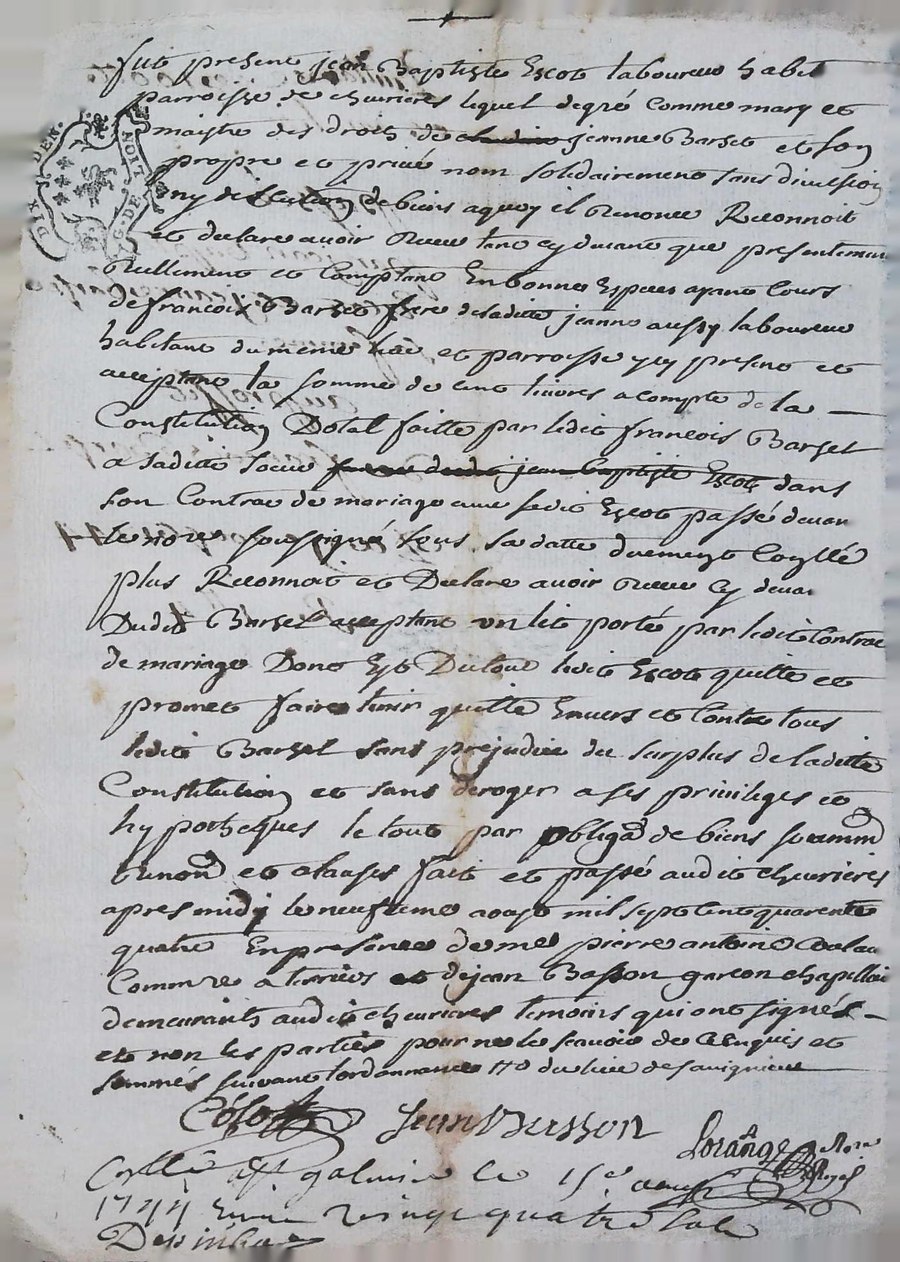 fut present jean Baptiste Escot laboureur habit
parroisse de chevrieres lequel de gré comme mary et
maistre des droits de jeanne Barset et son
propre et privé nom solidairement sans division
ny discution de biens a quoy il renonce Reconnoit
et declare avoir Receu tant cy devant que presentement
Reellement et Comptant En bonnes Especes ayant Cours
de francois Barset frere de laditte jeanne aussy laboureur
habitant du meme lieu et parroisse y cy present et
acceptant la somme de cent livres a compte de la
Constitution Dotal faitte par ledit francois Barset
a saditte soeur jean Baptiste Escot dans
son Contrac de mariage avec ledit Escot passé devan
le nore soussigné sous sa datte duement Coyllé
plus Reconnoit et Declare avoir Receu Cy devan
Dudit Barset acceptant un lit porté par ledit Contrac
de mariage Dont Et Du tout ledit Escot quitte et
promet faire tenir quitte Envers et Contre tous
ledit Barset sans prejudice du surplus de laditte
Constitution et sans deroger a ses privileges et
hypotheques le tout par obligaon de biens
renonon et clauses fait et passé audit chevrieres
apres midy le neufieme aoust mil sept cent quarente
quatre En presence de me pierre antoine
Commre a terriers et de jean Basson garcon chapellier
demeurants audit chevrieres temoins qui ont signés
et non les parties pour ne le scavoir de Enquis et
sommés suivant l'ordonnance
Jean Busson
Lorange Nore Royal
Cyllé a St galmier le 15e aoust
1744 vingt quatre sols